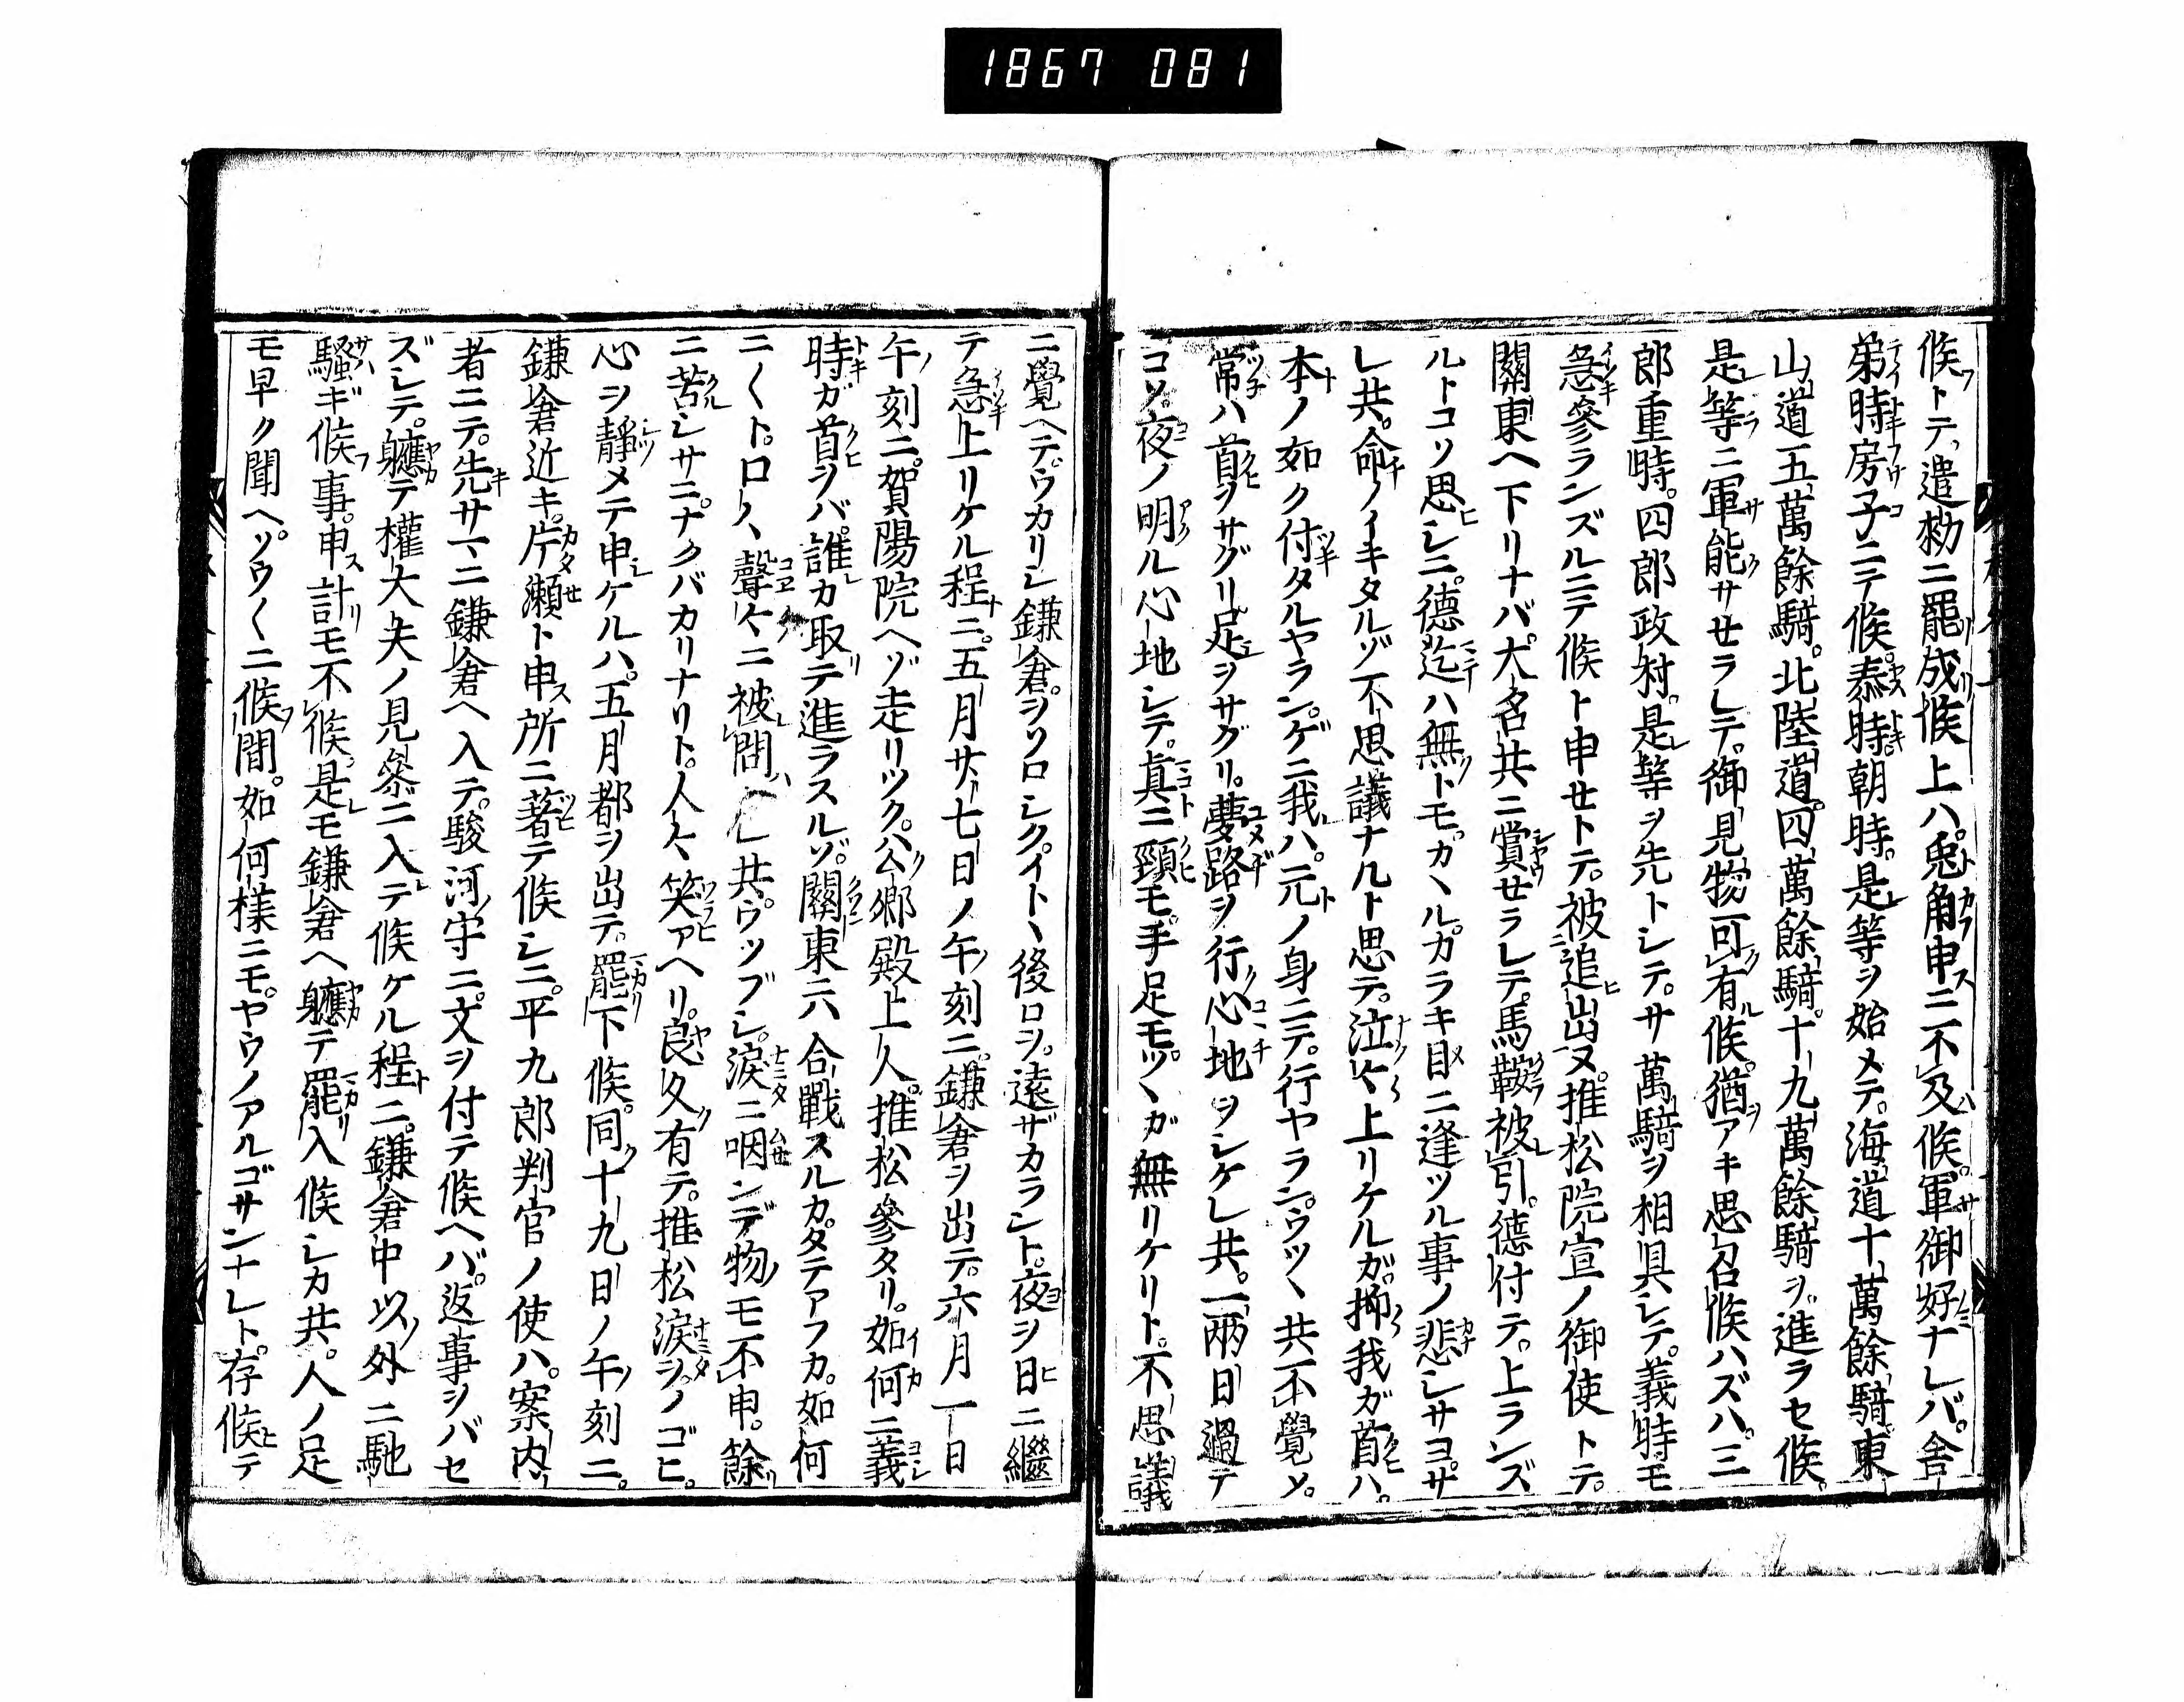 1867 081
候トテ遣勅ニ罷成候上ハ。兎角申ニ不及候。軍御好ナレバ。舎
弟時房子ニテ候泰時。朝時。是等ヲ始メテ。海道十萬餘騎東
山道五萬餘騎。北陸道四萬餘騎。十九萬餘騎ヲ進ラセ候。
是等ニ軍能サセラレテ。御見物可有候。猶アキ思召候ハズハ。三
郎重時。四郎政村。是等ヲ先トシテ。廿萬騎ヲ相具シテ。義時モ
急參ランズルニテ候ト申セトテ。被追出ヌ。推松院宣ノ御使トテ。
關東ヘ下リナバ。大名共ニ賞セラレテ。馬鞍被引。德付テ。上ランズ
ルトコソ思シニ。德迄ハ無トモ。カヽルカラキ目ニ逢ツル事ノ悲シサヨ。サ
レ共。命ノイキタルゾ不思議ナルト思テ。泣々上リケルガ。抑我ガ首ハ。
本ノ如ク付タルヤラン。ゲニ我ハ。元ノ身ニテ。行ヤラン。ウツヽ共不覺メ。
常ハ首ヲサグリ足ヲサグリ。夢路ヲ行心地ヲシケレ共。一兩日過テ
コソ。夜ノ明ル心地シテ。真ニ頸モ。手足モ。ツヽガ無リケリト。不思議
ニ覺ヘテ。ウカリシ鎌倉。ヲソロシク。イトヽ後ロヲ。遠ザカラント。夜ヲ日ニ繼
テ急上リケル程ニ。五月廿七日ノ午刻ニ。鎌倉ヲ出テ。六月一日
午刻ニ。賀陽院ヘゾ走リツク。公卿殿上人。推松參タリ。如何ニ義
時ガ首ヲバ。誰カ取テ進ラスルゾ。關東ニ六合戰スルカ。タテアフカ。如何
ニ〱ト。口々聲々ニ被問シ共。ウツブシ。淚ニ咽ンデ物モ不申。餘
ニ苦シサニ。ナクバカリナリト。人々笑アヘリ。良久有テ。推松淚ヲノゴヒ。
心ヲ靜メテ申ケルハ。五月都ヲ出テ。罷下候。同十九日ノ午刻ニ。
鎌倉近キ。片瀬ト申所ニ著テ候シニ。平九郎判官ノ使ハ。案内
者ニテ。先サマニ鎌倉ヘ入テ。駿河守ニ。文ヲ付テ候ヘバ。返事ヲバセ
ズシテ。軈テ權大夫ノ見參ニ入テ候ケル程ニ。鎌倉中以外ニ馳
騷ギ候事。申計モ不候。是モ鎌倉ヘ軈テ罷入候シカ共。人ノ足
モ早ク聞ヘ。ソウ〱ニ候間。如何樣ニモ。ヤウノアルゴサンナレト。存候テ